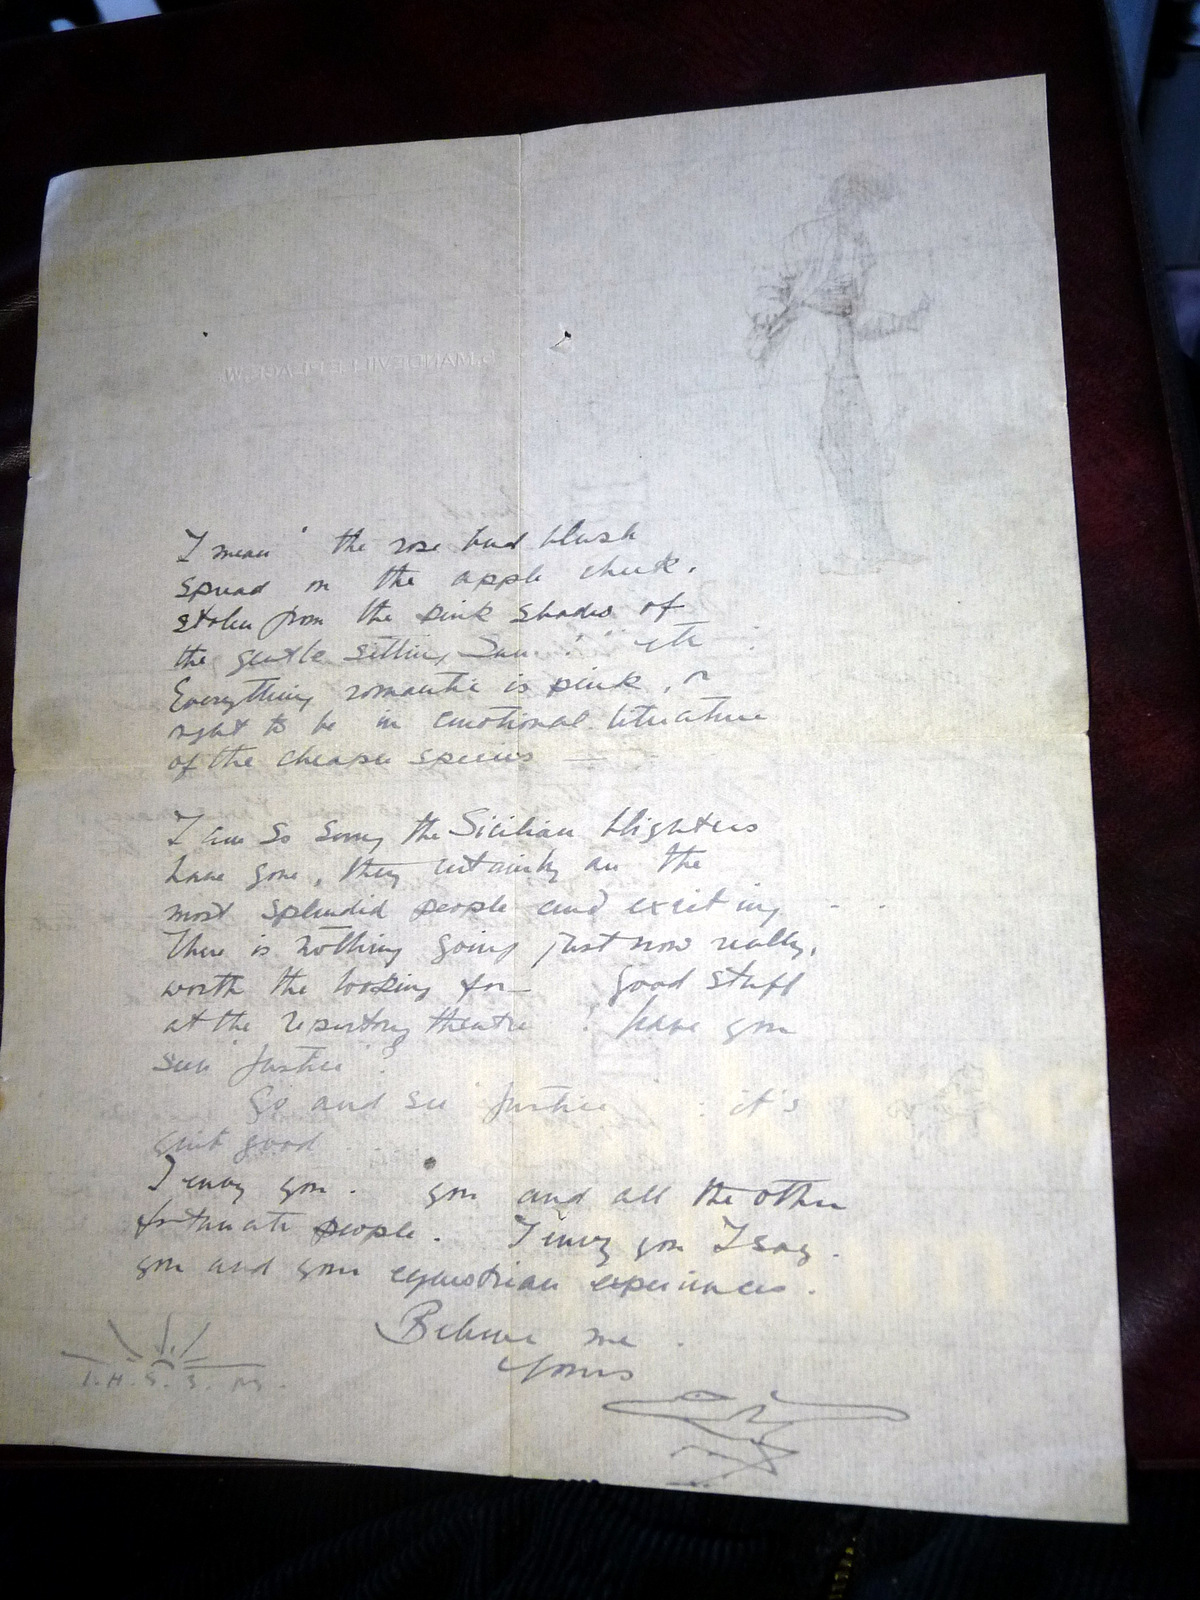 I mean " the rose bud blush
spread on the apple cheek,
stolen from the pink shades of
the gentle setting Sun. " etc :
Everything romantic is pink, or
ought to be in emotional literature
of the cheaper species —
I am so sorry the Sicilian blighters
have gone, they certainly are the
most splendid people and exciting - -
There is nothing going just now really,
worth the looking for— Good stuff
at the repertory theatre : have you
seen "Justice"?
Go and see "Justice" : it's
quite good
I envy you. you and all the other
fortunate people. I envy you I say.
you and your equestrian experiences.
Believe me.
Yours
I.H.S.S.
MANDEVILLE PLACE, W.